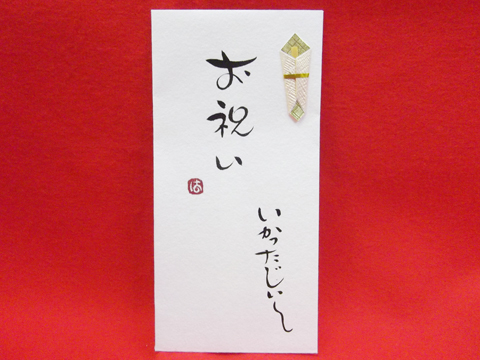 お祝い
は
いかったじぃ〜